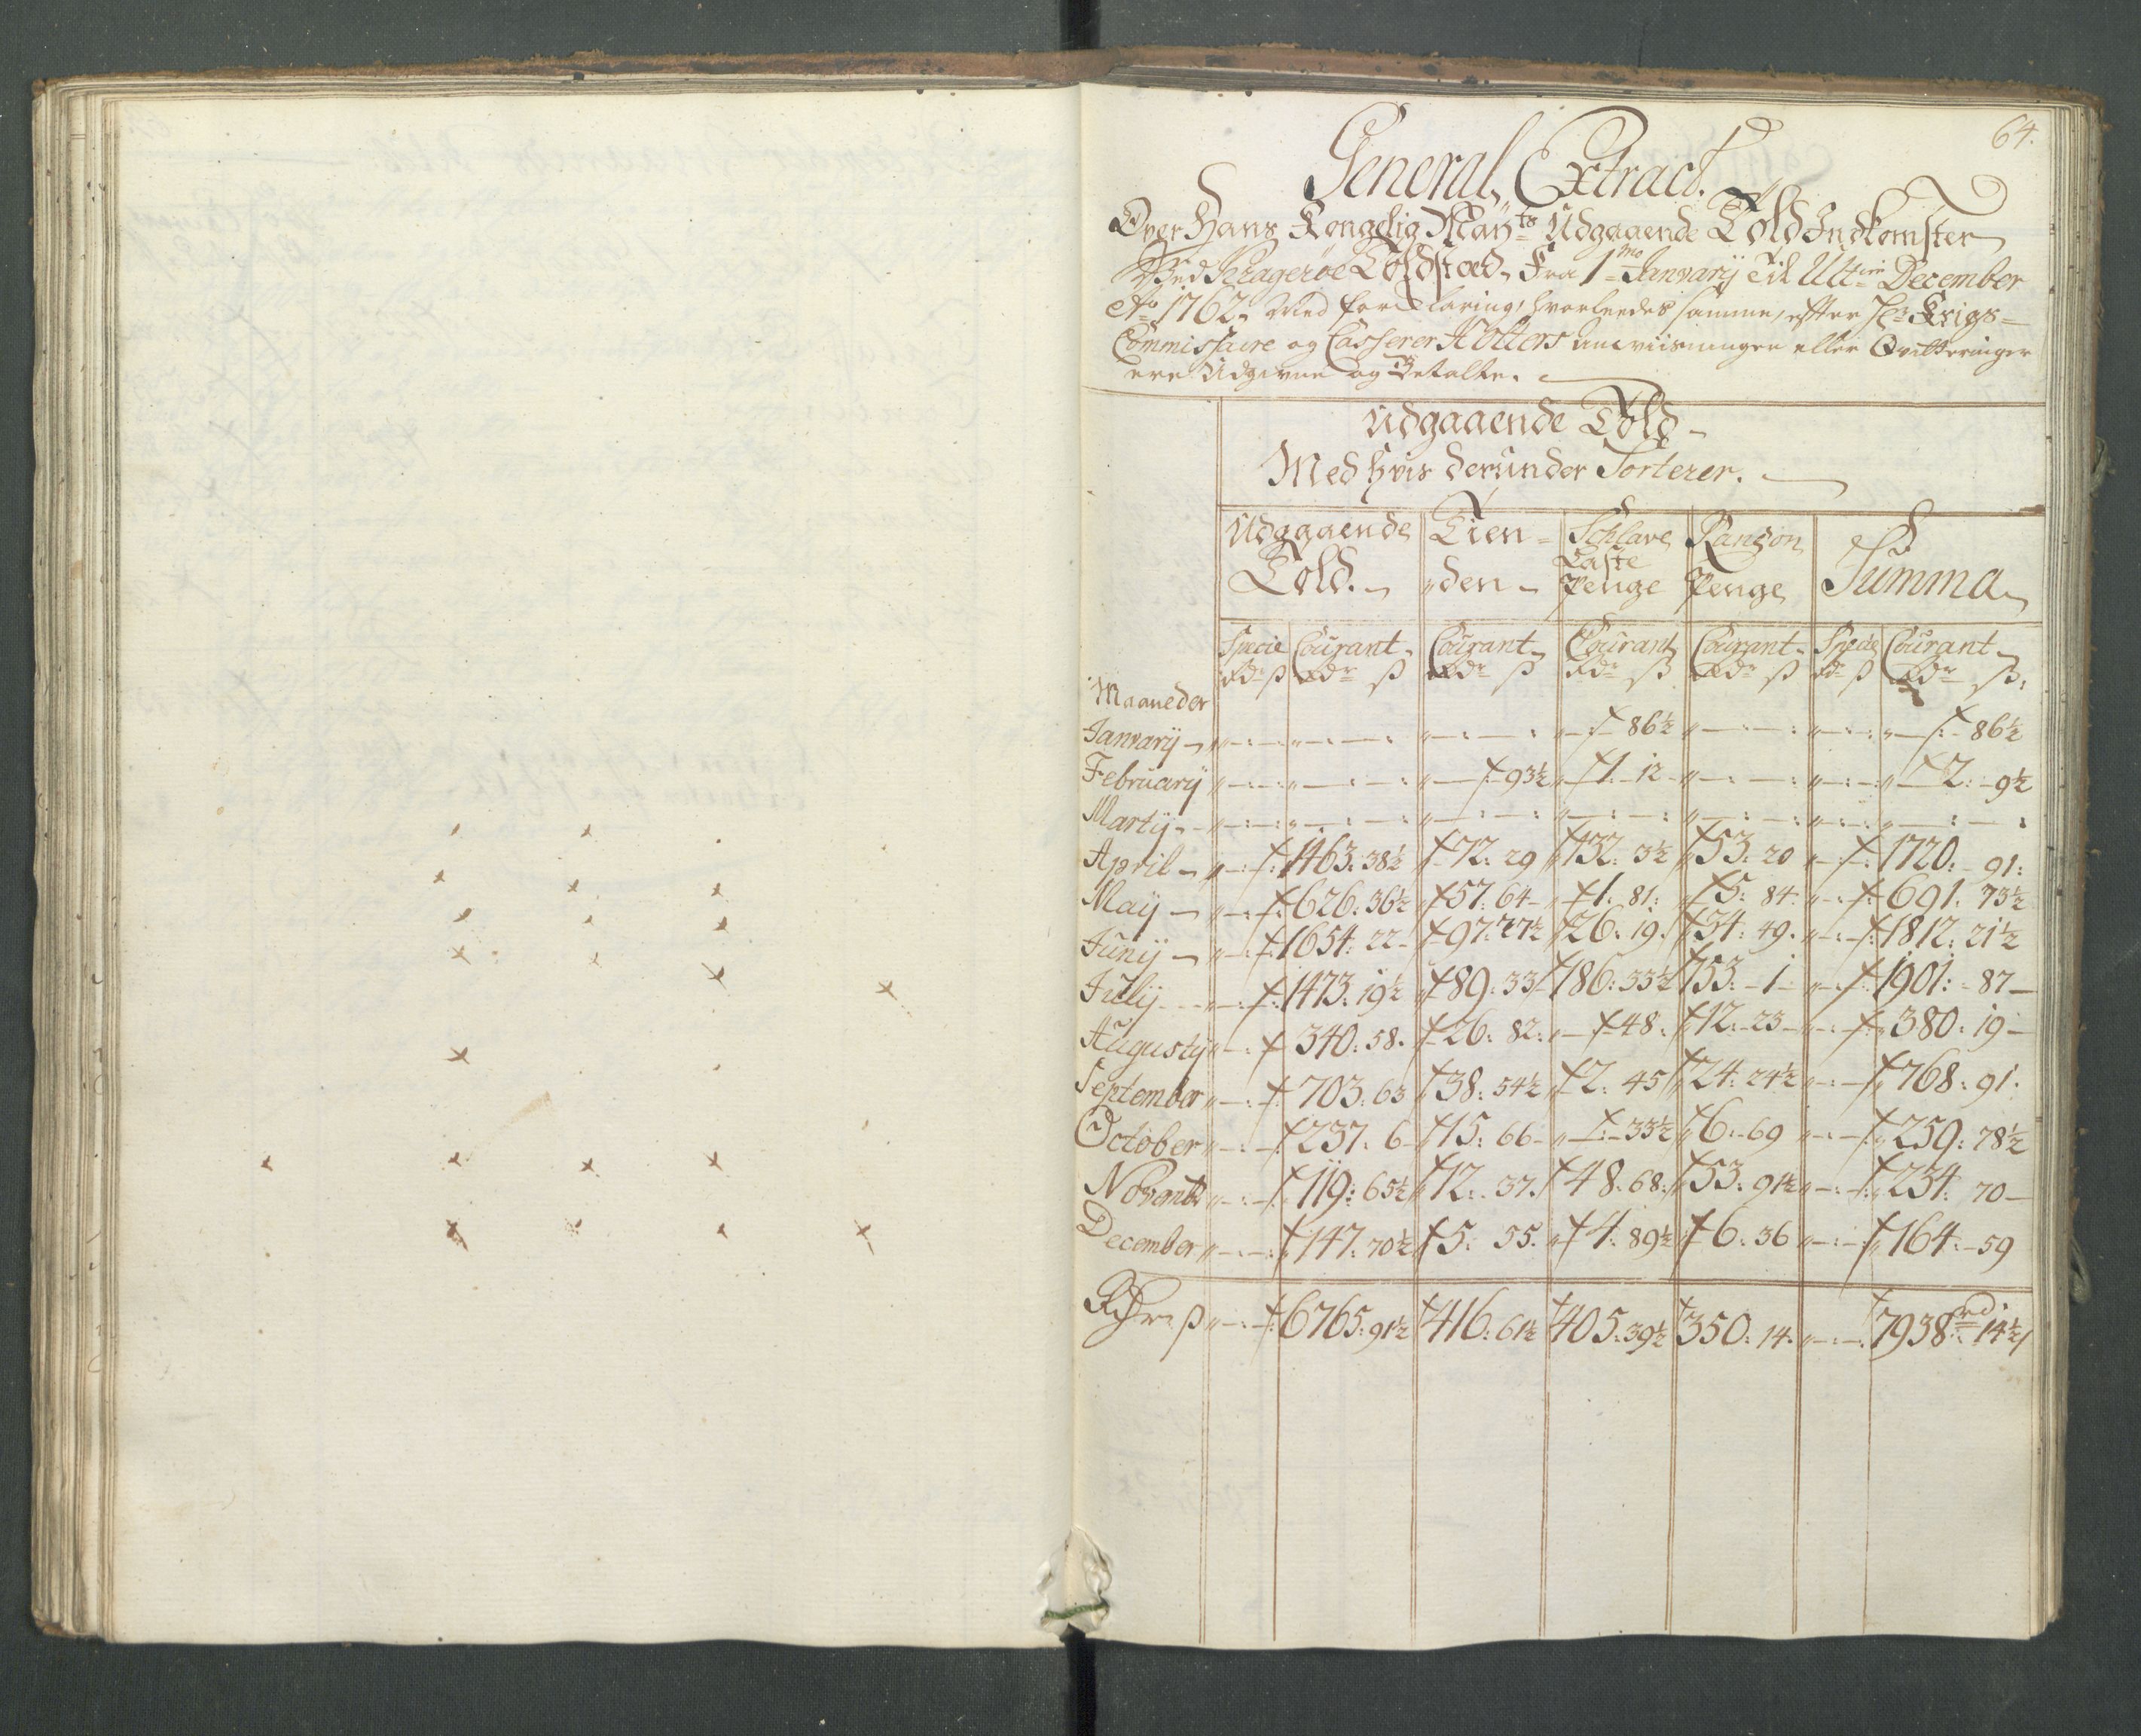 64.
General Extract.
Over Hans Kongelig Mayts Udgaaende Told Indkomster
Ved Kragerøe Toldsted, Fra 1mo January Til Ultim December
Ao 1762. Med forklaring, hvorleedes samme, efter Hr Krigs=
Commissaire og Casserer Hotters anviisninger eller Qvitteringer
ere Udgivne og Betalte.
Udgaaende Told
Med hvis derunder Sorterer.
Udgaaende Tien= Schlave Ranzon
Laste
Told. den Penge Penge Summa
Specie Courant Courant Courant Courant Specie Courant
Rdr ß Rdr ß Rdr ß Rdr ß Rdr ß Rdr ß Rdr ß
Maaneder
January 86½ 86½
February 93½ 1 12 2 9½
Martij
April 1463: 38½ 72: 29 132: 3½ 53: 20 1720: 91:
Maij 626: 36½ 57: 64 1: 81: 5: 84 691: 73½
Junij 1654: 22 97: 27½ 26: 19. 34: 49. 1812: 21½
Julij 1473: 19½ 89: 33 186: 33½ 153: 1 1901: 87
Augustij 340: 58. 26: 82: 48. 12: 23 380: 19
September 703: 63 38: 54½ 2: 45 24: 24½ 768: 91:
October 237: 6 15: 66 33½ 6: 69 259: 78½
Novembr 119: 65½ 12: 37. 48: 68: 53: 91½ 234: 70
December 147: 70½ 5: 55. 4: 89½ 6: 36 164: 59
Rdr ß 6765: 91½ 416: 61½ 405: 39½ 350: 14. 7938 rd 14½ ß